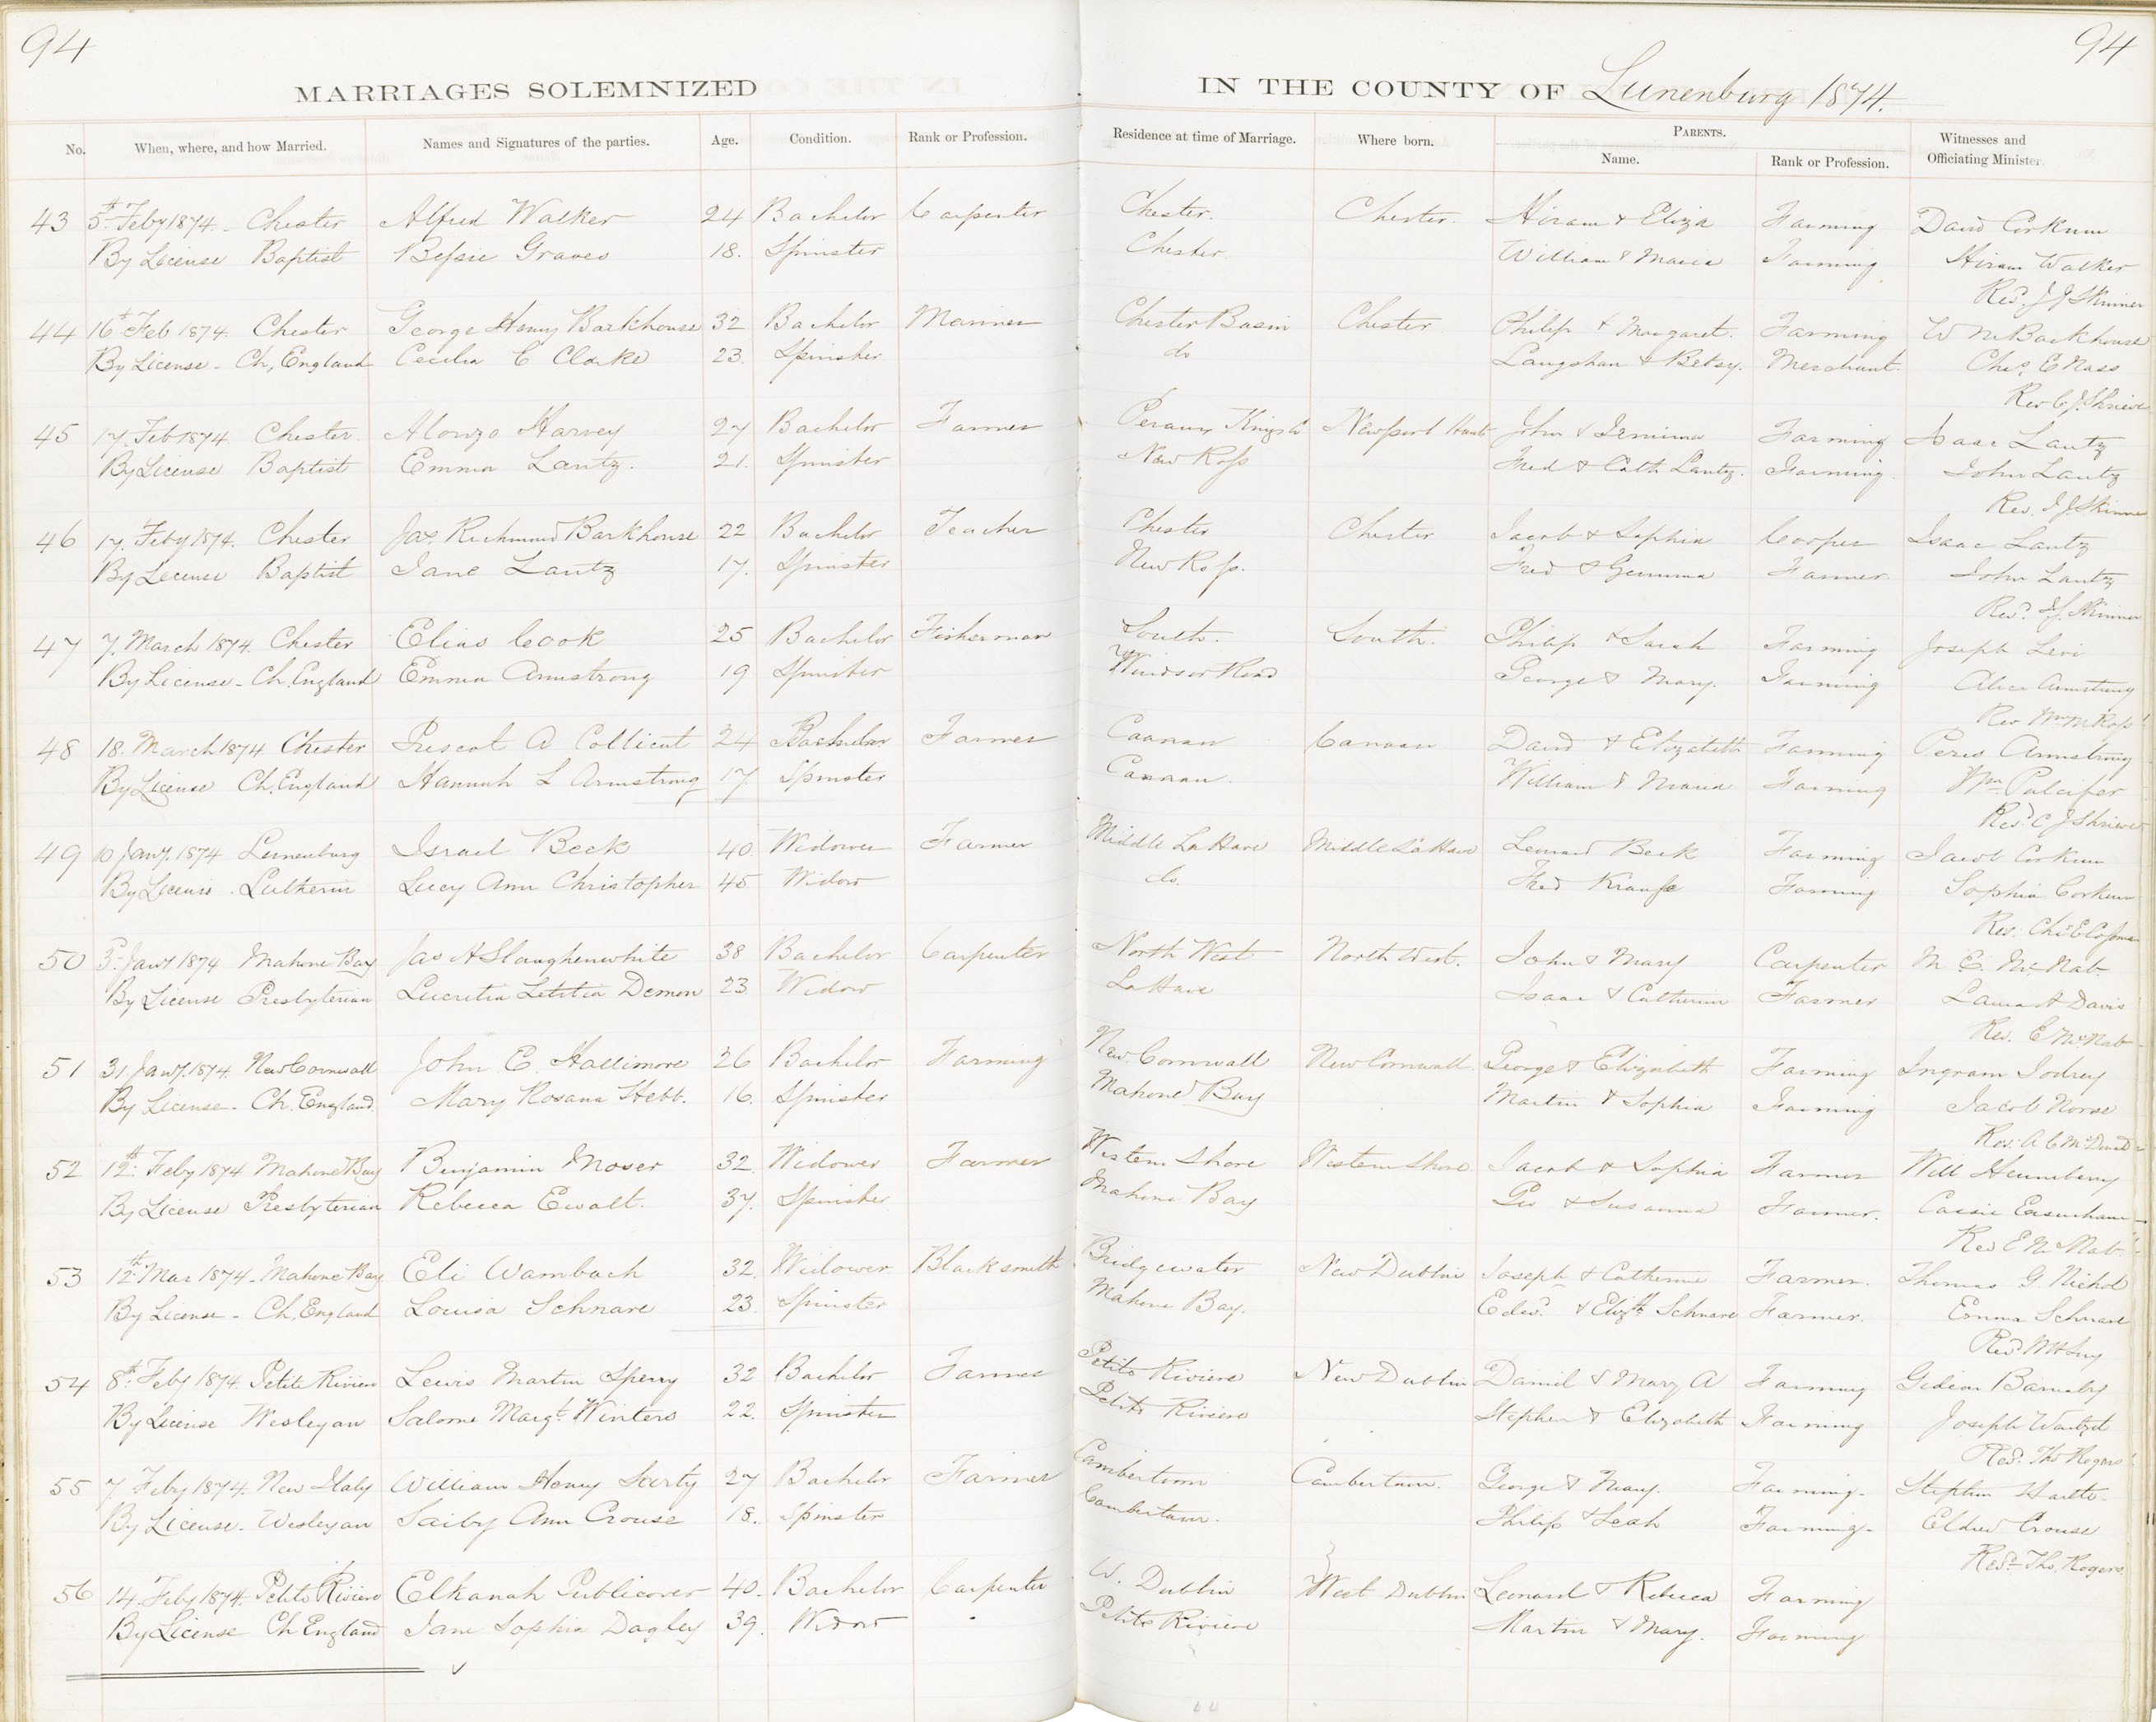 94
94
MARRIAGES SOLEMNIZED IN THE COUNTY OF Lunenburg 1874.
No. When, where, and how Married. Names and Signatures of the parties. Age. Condition. Rank or Profession. Residence at time of Marriage. Where born. PARENTS. Name. Rank or Profession. Witnesses and Officiating Minister
43 5th Feby 1874 - Chester Alfred Walker 24 Bachelor Carpenter Chester. Chester. Hiram & Eliza Farming David Corkum
By License Baptist Bessie Graves 18. Spinster Chester. William & Maria Farming Hiram Walker
Revd. J J Skinner
44 16th Feb 1874. Chester George Henry Barkhouse 32 Bachelor Mariner Chester Basin Chester Philip & Margaret. Farming W M Barkhouse
By License - Ch, England Cecilia C Clarke 23. Spinster do Langshan & Betsy. Merchant. Chas. E Nass
Rev C J. Shrieve
45 17. Feb 1874 Chester Alonzo Harvey 27 Bachelor Farmer Kings Co Newport Hants John & Jemima Farming Isaac Lantz
By License Baptist Emma Lantz. 21. Spinster New Ross Fred & Cath Lantz. Farming. John Lantz
Rev. J J. Skinner
46 17. Feby 1874. Chester Jas. Richmond Barkhouse 22 Bachelor Teacher Chester Chester Jacob & Sophia Cooper Isaac Lantz
By License Baptist Jane Lantz 17. Spinster New Ross. Fred & Gemima Farmer John Lantz
Revd. J J. Skinner
47 7. March 1874. Chester Elias Cook 25 Bachelor Fisherman South. South. Philip & Sarah Farming Joseph Levi
By License - Ch. England Emma Armstrong 19 Spinster Windsor Road George & Mary. Farming Alice Armstrong
Rev Wm M Ross
48 18. March 1874 Chester Prescot A Collicut 24 Bachelor Farmer Canaan Canaan David & Elizabeth Farming Peres Armstrong
By License Ch. England Hannah L Armstrong 17 Spinster Canaan. William & Maria Farming Wm Pulcifer
Revd. C J Shrieve
49 10 Jany. 1874 Lunenburg Israel Beck 40 Widower Farmer Middle LaHave Middle LaHave Leonard Beck Farming Jacob Corkum
By License. Lutheran Lucy Ann Christopher 45 Widow do. Fred Krauße Farming Sophia Corkum
Rev. Chs E Cossman
50 3. Jany 1874 Mahone Bay Jas A Slaughenwhite 38 Bachelor Carpenter North West North West. John & Mary Carpenter M E. McNab
By License Presbyterian Lucretia Letitia Demon 23. Widow LaHave Isaac & Catherine Farmer Laura A Davis
Rev. E McNab
51 31. Jany. 1874. New Cornwall John E. Hallimore 26 Bachelor Farming New Cornwall New Cornwall. George & Elizabeth Farming Ingram Jodrey
By License - Ch. England. Mary Rosana Hebb. 16. Spinster Mahone Bay Martin & Sophia Farming Jacob Norse
Rev. A C McDonald
52 12th. Feby 1874 Mahone Bay Benjamin Moser 32. Widower Farmer Western Shore Western Shore Jacob & Sophia Farmer Will Henneberry
By License Presbyterian Rebecca Ewalt. 37. Spinster Mahone Bay Geo & Susanna Farmer. Cassie Eisenhaur
Rev E McNab
53 12th. Mar 1874 - Mahone Bay Eli Wambach 32. Widower Blacksmith Bridgewater New Dublin Joseph & Catherine Farmer. Thomas G. Nichol
By License - Ch. England Louisa Schnare 23. Spinster Mahone Bay. Edwd. & Elizth Schnare Farmer. Emma Schnare
Revd
54 8th. Feby 1874. Petite Riviere Lewis Martin Sperry 32 Bachelor Farmer Petite Riviere New Dublin Daniel & Mary A Farming Gideon Barnaby
By License Wesleyan Salome Margt. Winters 22. Spinster Petite Riviere Stephen & Elizabeth Farming Joseph
Revd. Thos Rogers
55 7 Feby 1874. New Italy William Henry Sarty 27 Bachelor Farmer Cambertown Cambertown. George & Mary. Farming - Stephen
By License. Wesleyan Saiby Ann Crouse 18. Spinster Cambertown. Philip & Leah Farming - Crouse
Revd. Thos. Rogers
56 14. Feby 1874. Petite Riviere Elkanah Publicover 40. Bachelor Carpenter W. Dublin West Dublin Leonard & Rebecca Farming
By License Ch England Jane Sophia Dagley 39. Widow Petite Riviere Martin & Mary. Farming